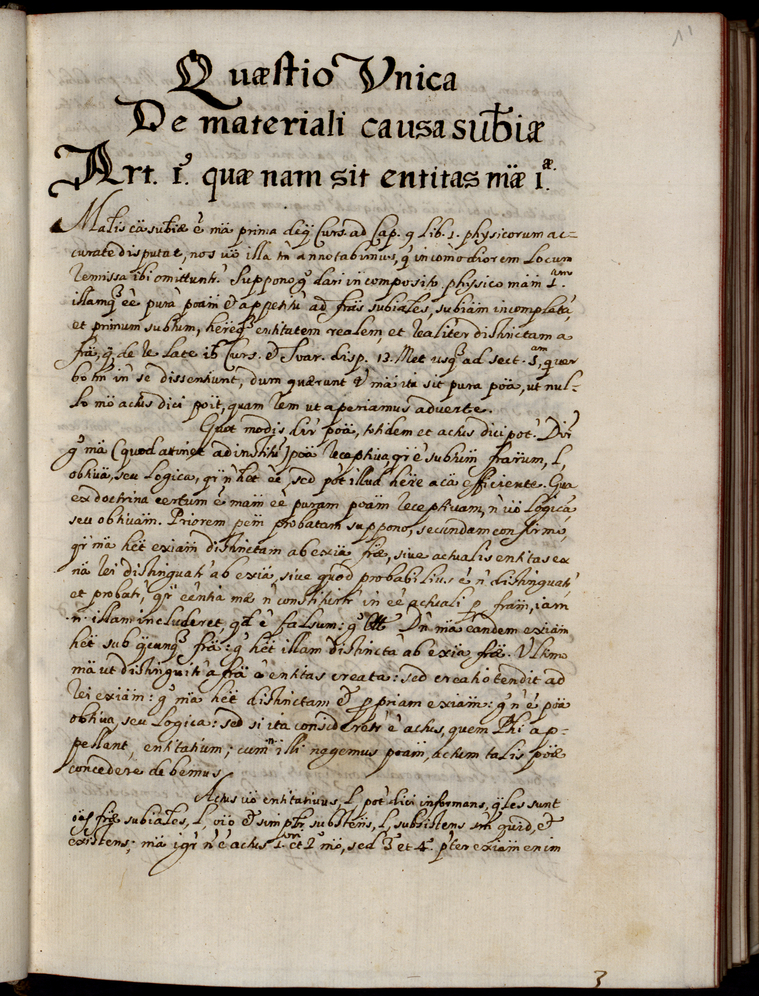 11
Quæstio Vnica
De materiali causa subiæ
Art. 1. quæ nam sit entitas mæ 1.æ
Malis cã subiæ ẽ mã prima de qȷ̃ Curs. ad Cap. 9 Lib. 1. physicorum ac=
curate disputat, nos uõ illa tñ annotabimus, q̃ incomodiorem Locum
remissa ibi omittunt'. Suppono q̃ dari in composito physico mãm 1.am
illamq̃ eẽ purã poãm & appetitũ ad frãs subiales, subiãm incompletã
et primum subium, hẽreq̃ entitatem realem et realiter distinctam a
frã, q̃ de re late ib̃ Curs. & Suar. disp. 13. Met usq̃ ad sect. 5.am, quer
bo tñ in se dissentiunt, dum quærunt ũ mã ita sit pura poã, ut nul=
lo mõ actus dici poit, quam rem ut aperiamus aduerte.
Quot modis dir̃ poã, totidem et actus dici pot. Diri
g̃ mã (quod attinet ad institũ) poã receptiua qr̃ ẽ subium frarum, L,
obtiua, seu Logica, qr̃ ñ het eẽ, sed pot illud hẽre a cã efficiente. Qua
ex doctrina certum ẽ mãm eẽ puram poãm receptiuam, ñ uõ Logicã
seu obtiuam. Priorem pẽm probatam suppono, secundam confirmo,
qr̃ mã het exiãm distinctam ab exiã frã, siue actualis entitas ex
nã rei distinguat' ab exiã, siue quod probabilius ẽ ñ distinguat'
et probat', qr̃ eẽntia mæ ñ constituit' in eẽ actuali p̱ frãm, iam
.n. illam includeret qd ẽ falsum: g̃ Dñ mã eandem exiãm
het sub qcunq̃ frã: g̃ het illam distinctã ab exiã frã. Vltimo
mã ut distinguit' a frã ẽ entitas creata: sed creatio tendit ad
rei exiãm: g̃ mã het distinctam & p̱priam exiãm: g̃ ñ ẽ poã
obtiua, seu Logica: sed si ita consideretr̃ ẽ actus, quem Phi ap=
pellant, entitatium; cum.n. illi nagemus poãm, actum talis poæ
concedere debemus
Actus uõ entitatiuus, L, pot dici informans, q̃les sunt
frã subiales, L, & simplr̃ subsistens, L, subsistens sm̃ quid, &
existens; mã igr̃ ñ ẽ actus 1. et 2 mõ, sed 3 et 4. pter exiãm enim
3